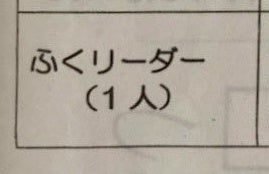 ふくリーダー
（1人）